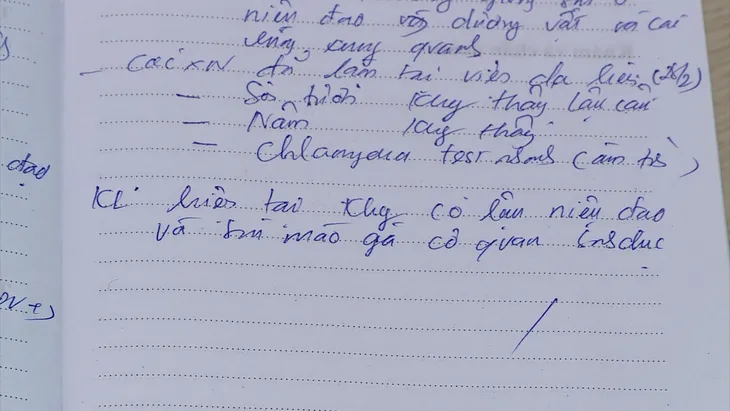 niệu đạo vùng dương vật và các
vùng xung quanh
- Các XN đã làm tại viện da liễu (28/2)
- Soi tươi khg thấy lậu cầu
- Nấm khg thấy
- Chlamydia test nhanh (âm tí)
đạo
KL hiện tại khg có lậu niệu đạo
và sùi mào gà cơ quan sinh dục